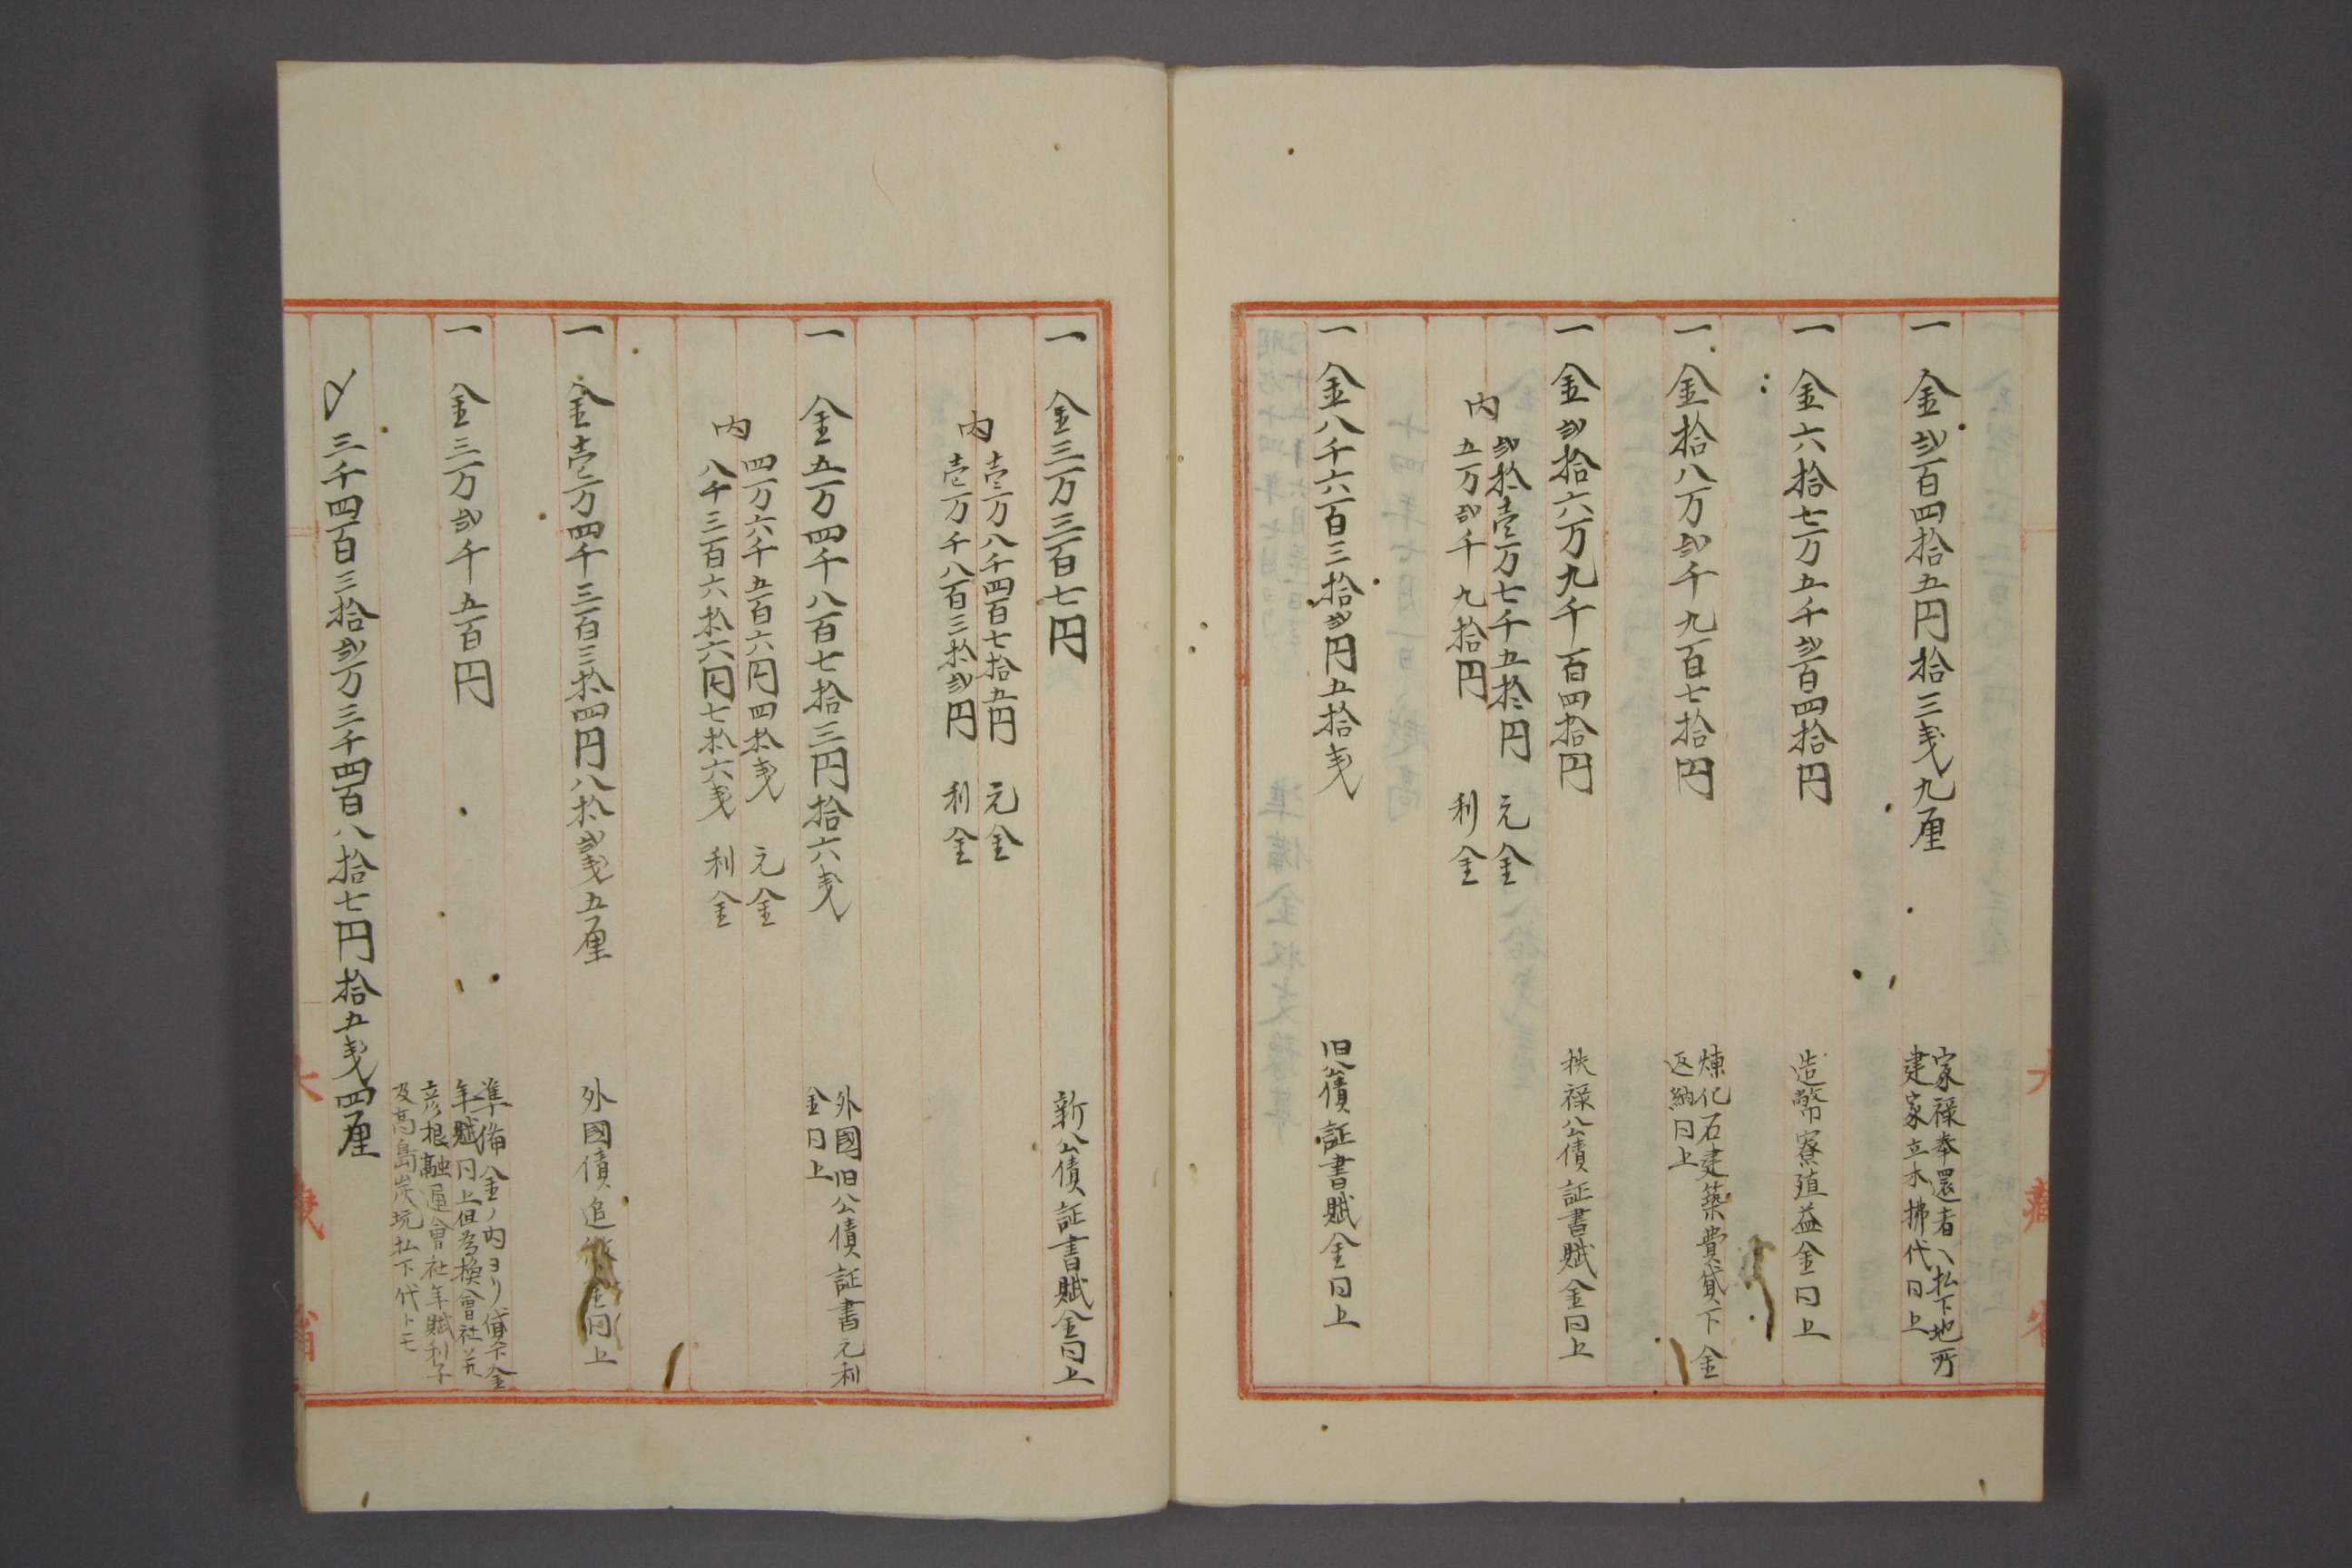 一 金弐百四拾五円拾三戔九厘
家禄奉還者ヘ払下地所
建家立木拂代仝上
一 金六拾七万五千弐百四拾円
造幣寮殖益金仝上
一 金拾八万弐千九百七拾円
煉化石建築費貸下金
返納仝上
一 金弐拾六万九千百四拾円
秩禄公債証書賦金仝上
内
弐拾壱万七千五拾円 元金
五万弐千九拾円 利金
一 金八千六百三拾弐円五拾戔
旧公債証書賦金仝上
一 金三万三百七円
新公債証書賦金仝上
内
壱万八千四百七拾五円 元金
壱万千八百三拾弐円 利金
一 金五万四千八百七拾三円拾六戔
外國旧公債証書元利
金仝上
内
四万六千五百六円四拾戔 元金
八千三百六拾六円七拾六戔 利金
一 金壱万四千三百三拾四円八拾弐戔五厘
外國債追金仝上
一 金三万弐千五百円
準備金ノ内ヨリ貸下金
年賦仝上但為換會社并
彦根融通會社年賦利子
及高島炭坑払下代トモ
〆三千四百三拾弐万三千四百八拾七円拾五戔四厘
大藏省